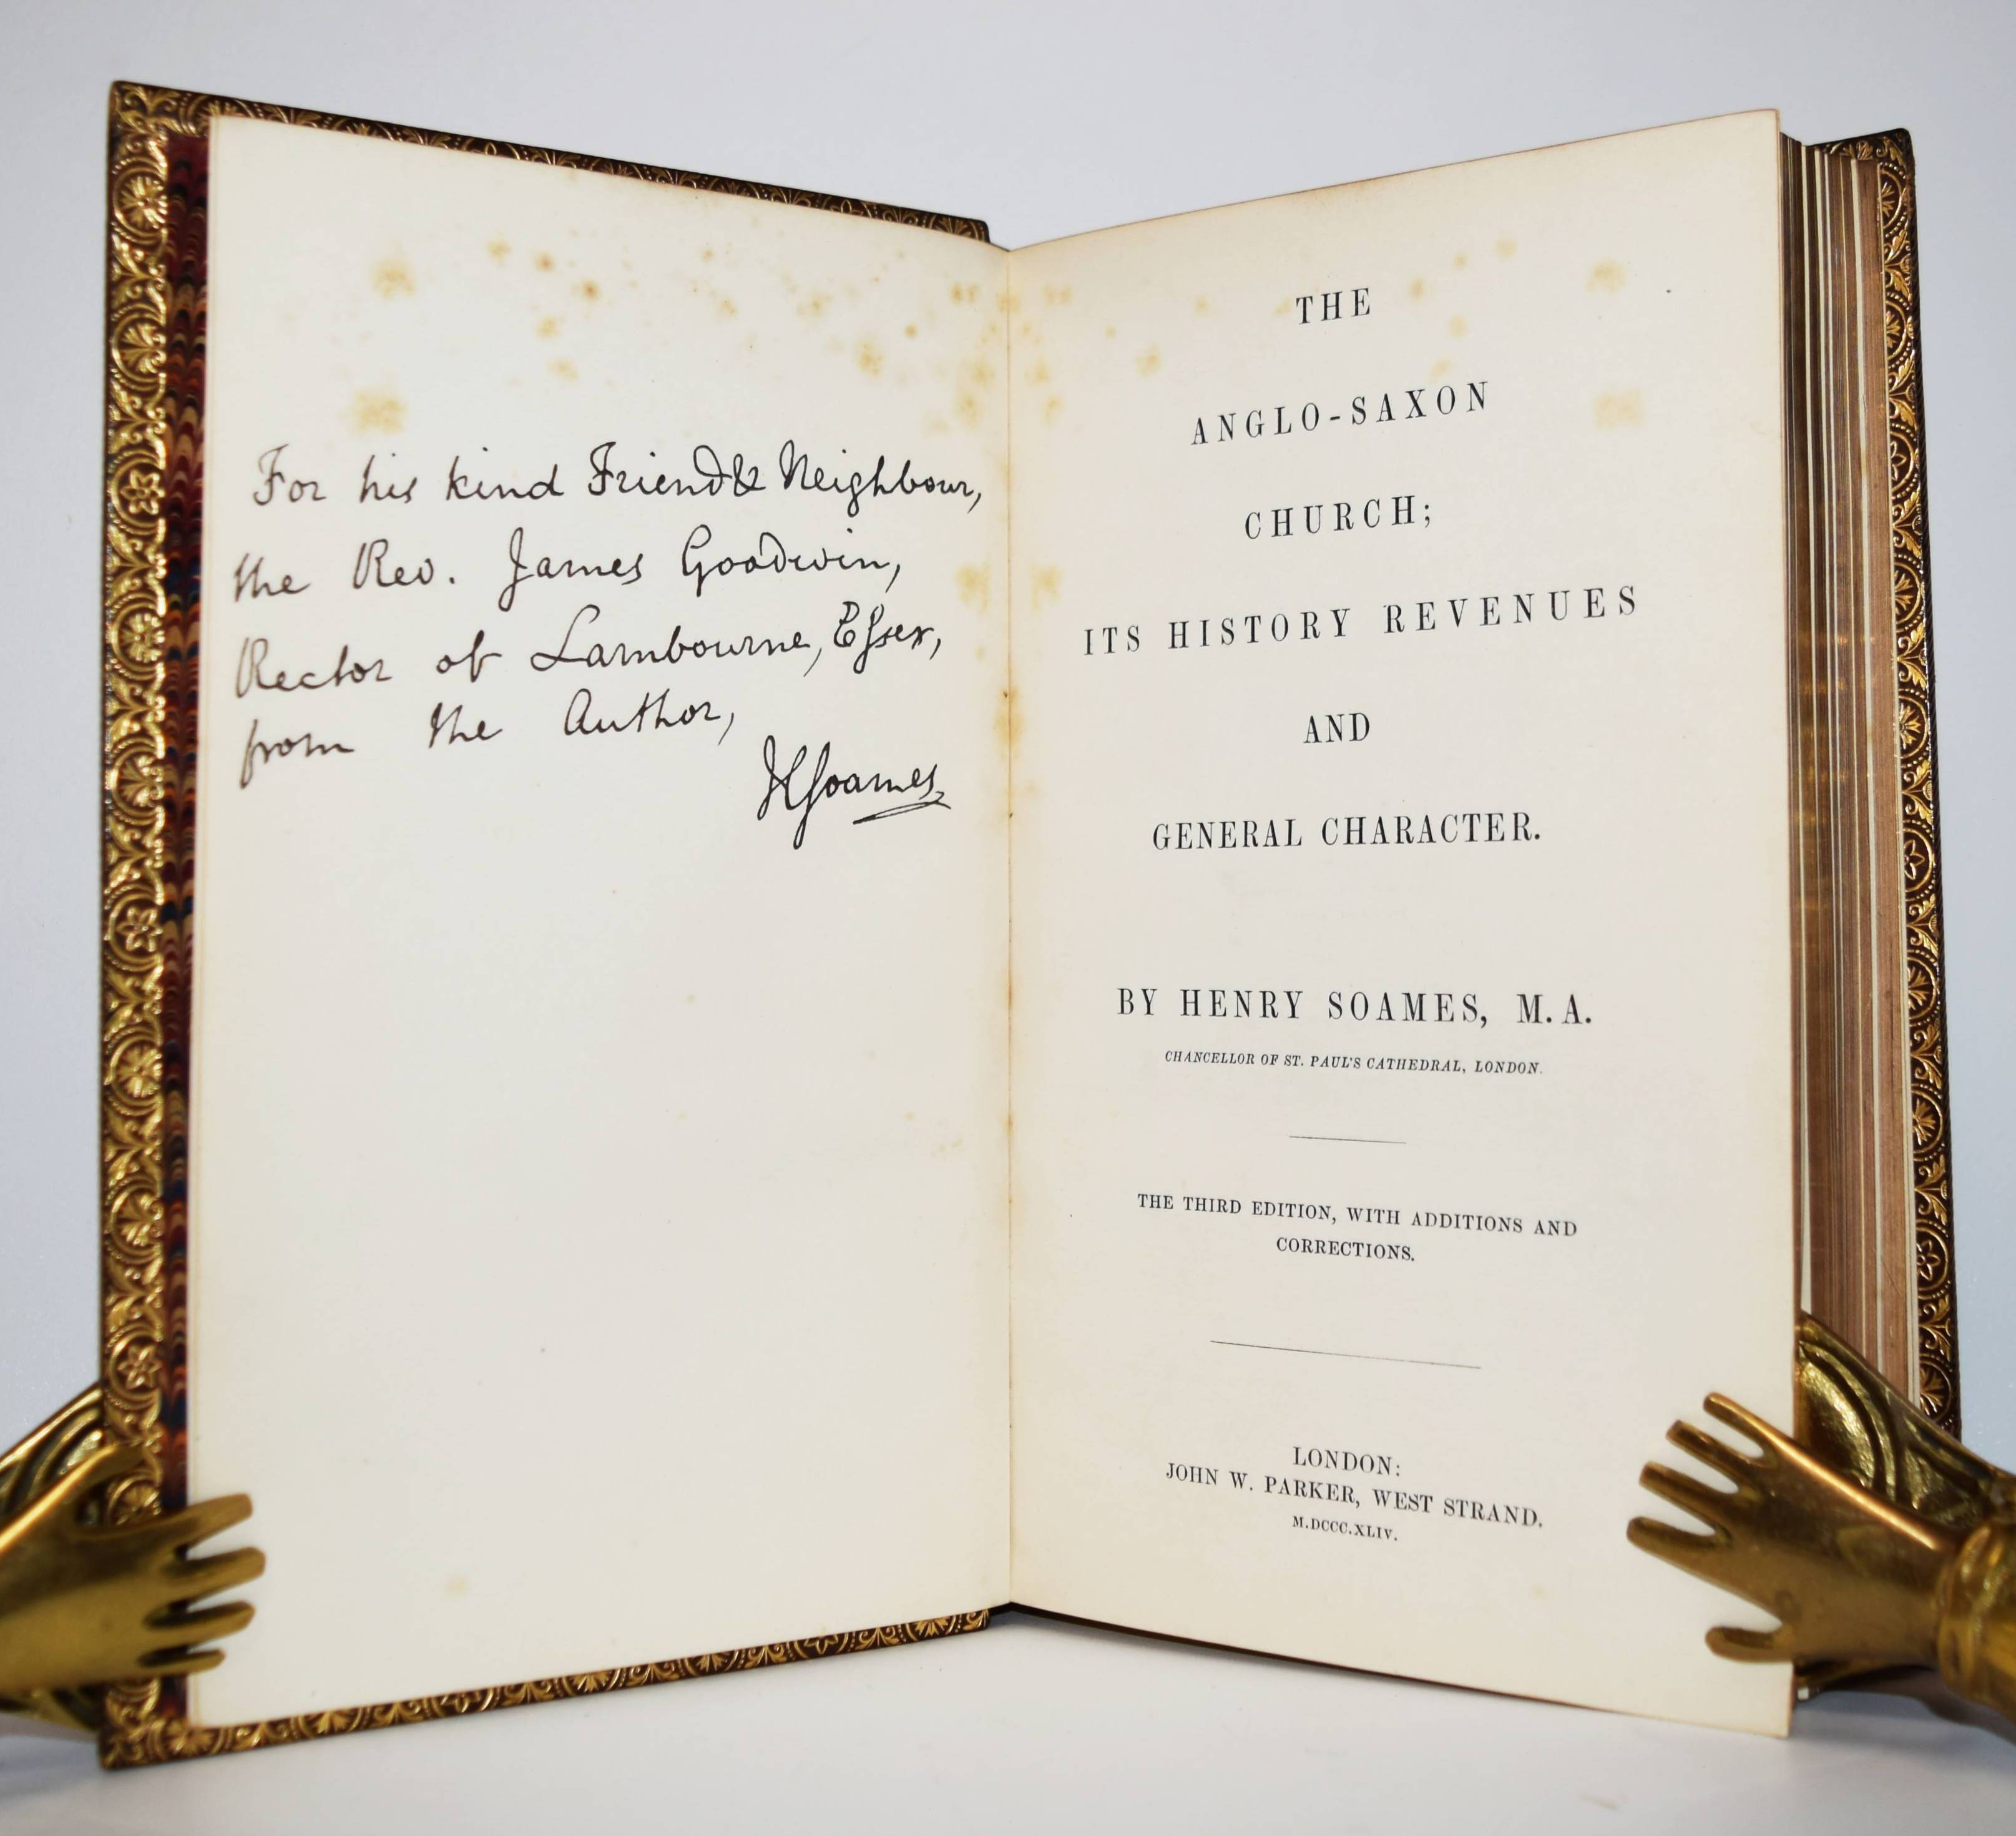 For his kind Friend & Neighbour,
the Rev. James Goodwin,
Rector of Lambourne, Essex,
from the Author,
HSoames
THE
ANGLO-SAXON
CHURCH;
ITS HISTORY REVENUES
AND
GENERAL CHARACTER.
BY HENRY SOAMES, M. A.
CHANCELLOR OF ST. PAUL'S CATHEDRAL, LONDON.
THE THIRD EDITION, WITH ADDITIONS AND
CORRECTIONS.
LONDON:
JOHN W. PARKER, WEST STRAND.
M.DCCC.XLIV.